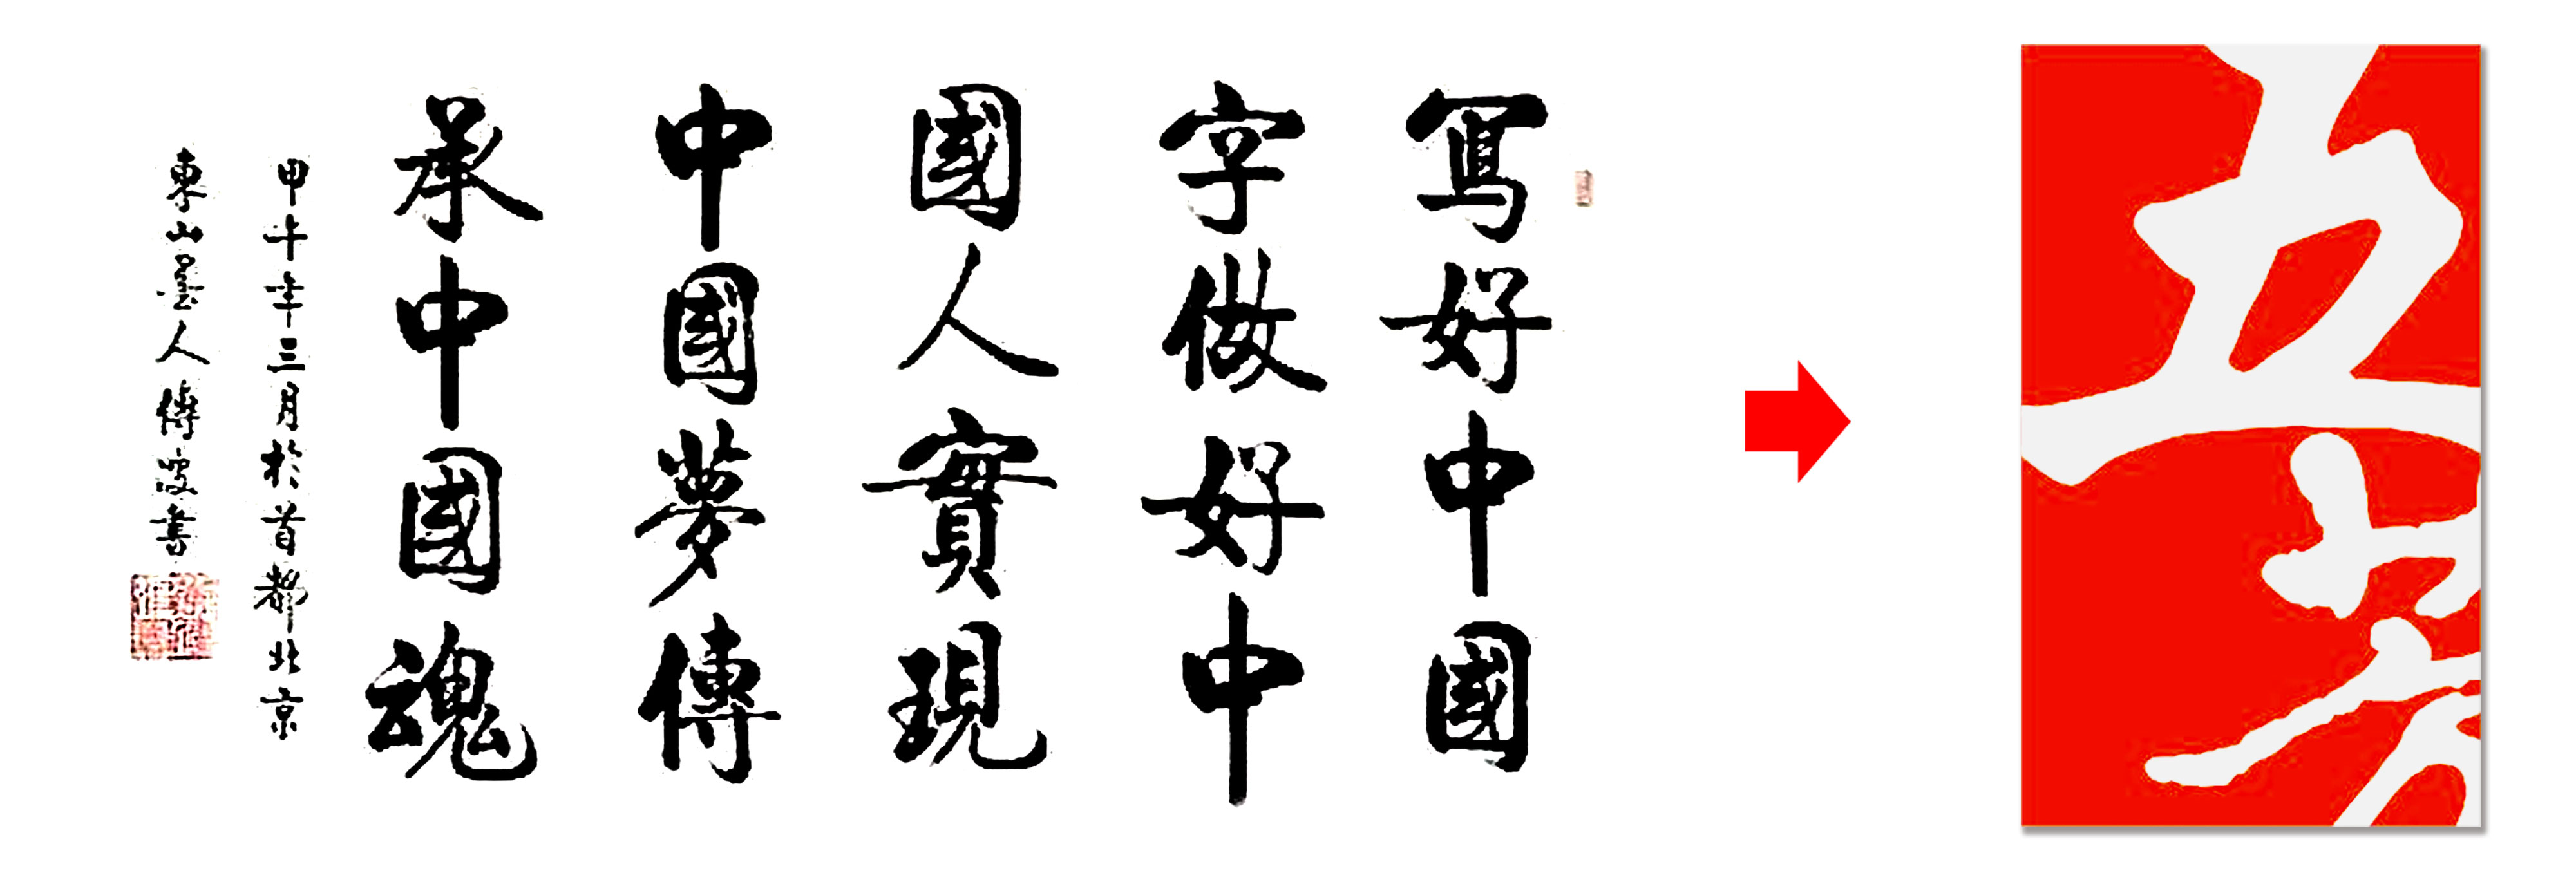 寫好中國
字做好中
國人實現
中國夢傳
承中國魂
甲午年三月於首都北京
東山墨人傅波書